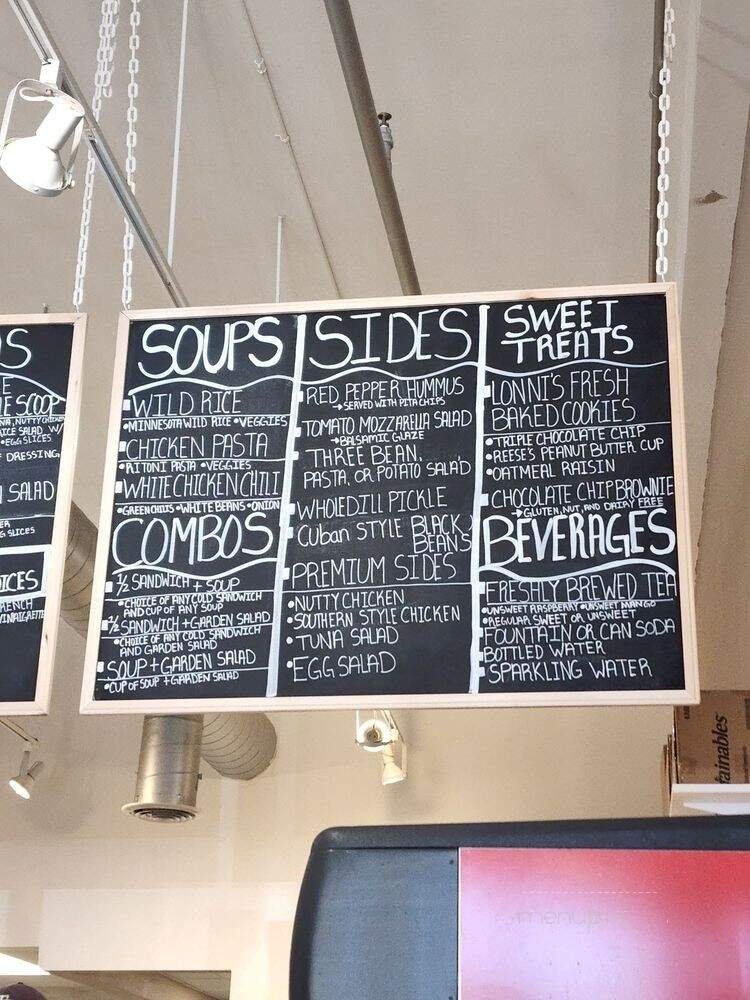 S
E
LE SCOOP
NA, NUTTY CHICKEN
ICE SALAD W/
• EGG SLICES
DRESSING,
SALAD
ER
G SLICES
ICES
RENCH
VINAIGRETTE
SOUPS
WILD RICE
• MINNESOTA WILD RICE • VEGGIES
CHICKEN PASTA
• RITONI PASTA • VEGGIES
WHITE CHICKEN CHILI
• GREEN CHILIS • WHITE BEANS • ONION
COMBOS
1/2 SANDWICH + SOUP
• CHOICE OF ANY COLD SANDWICH
AND CUP OF ANY SOUP
1/2 SANDWICH + GARDEN SALAD
• CHOICE OF ANY COLD SANDWICH
AND GARDEN SALAD
SOUP + GARDEN SALAD
• CUP OF SOUP + GARDEN SALAD
SIDES
RED PEPPER HUMMUS
→ SERVED WITH PITA CHIPS
TOMATO MOZZARELLA SALAD
→ BALSAMIC GLAZE
THREE BEAN,
PASTA, OR POTATO SALAD
WHOLE DILL PICKLE
CUBAN STYLE BLACK
BEANS
PREMIUM SIDES
• NUTTY CHICKEN
• SOUTHERN STYLE CHICKEN
• TUNA SALAD
• EGG SALAD
SWEET
TREATS
LONNI'S FRESH
BAKED COOKIES
• TRIPLE CHOCOLATE CHIP
• REESE'S PEANUT BUTTER CUP
• OATMEAL RAISIN
CHOCOLATE CHIP BROWNIE
→ GLUTEN, NUT, AND DAIRY FREE
BEVERAGES
FRESHLY BREWED TEA
• UNSWEET RASPBERRY • UNSWEET MANGO
• REGULAR SWEET OR UNSWEET
FOUNTAIN OR CAN SODA
BOTTLED WATER
SPARKLING WATER
tainables
menupix